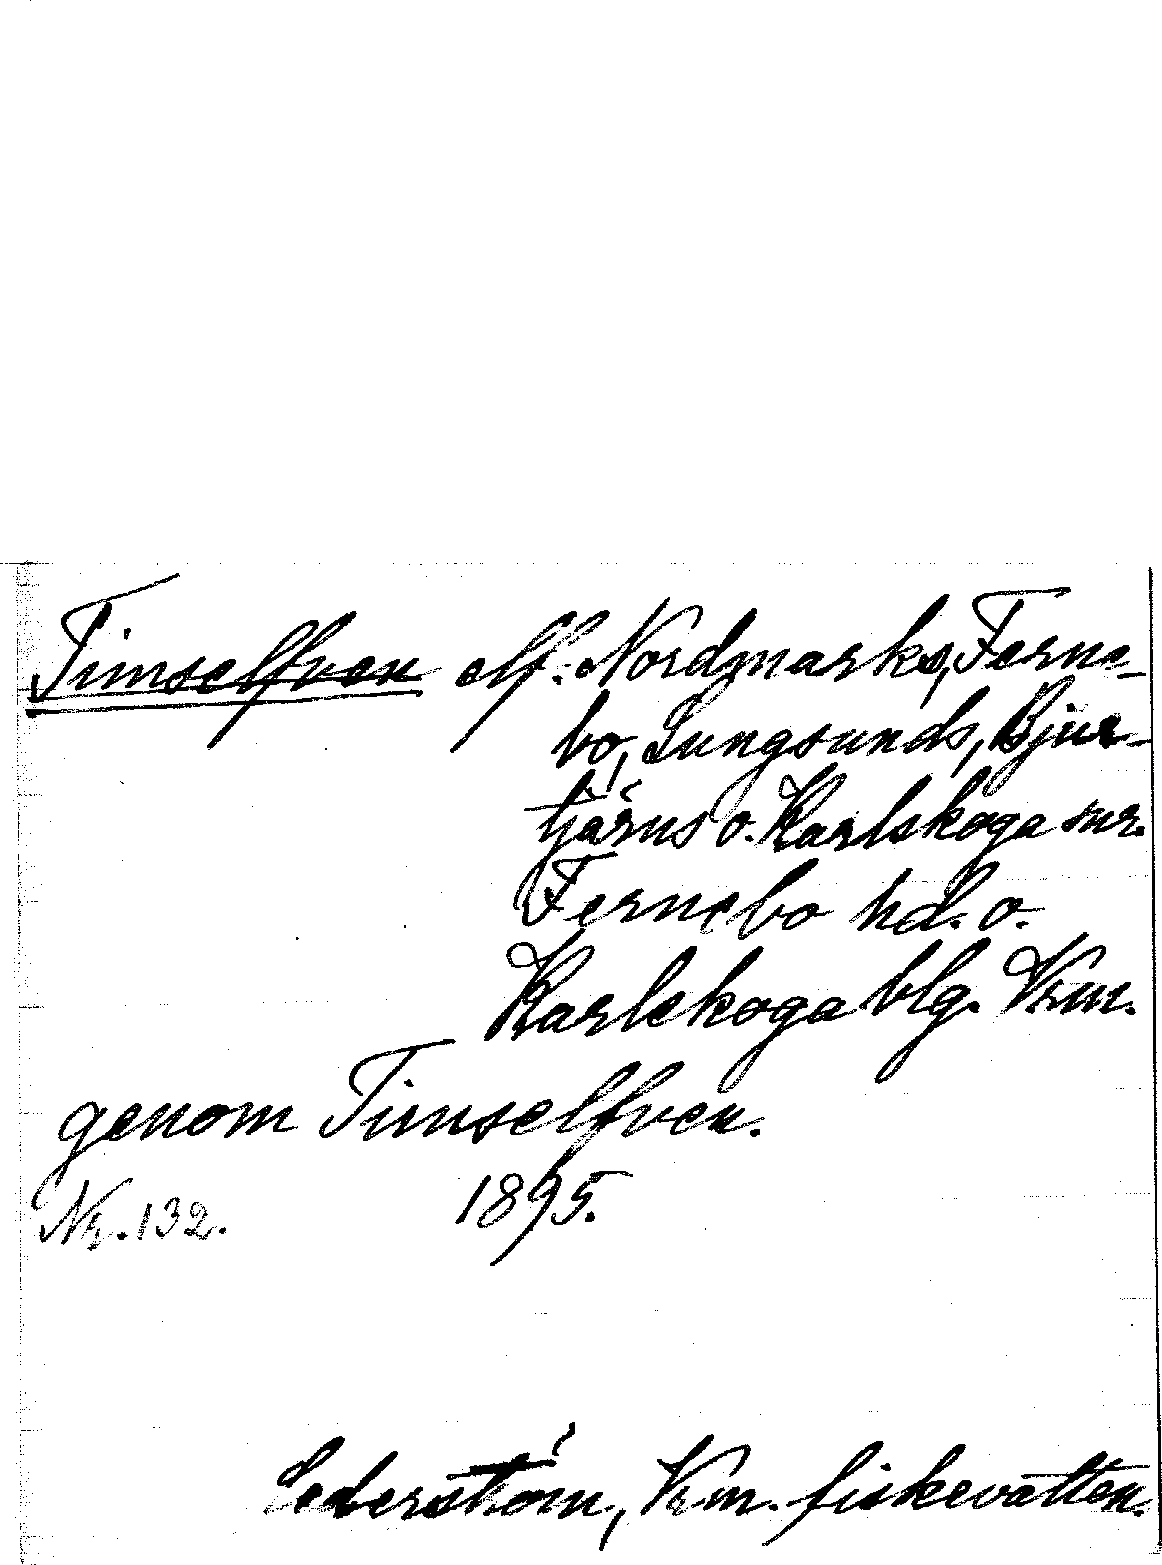 Timselfven elf. Nordmarks, Ferne-
bo, Lungsunds, Bjur-
tjärns o. Karlskoga snr.
Fernebo hd. o.
Karlskoga blg. Vrm.
genom Timselfven.
Nr. 132. 1895.
Cederström, Vrm. fiskevatten.